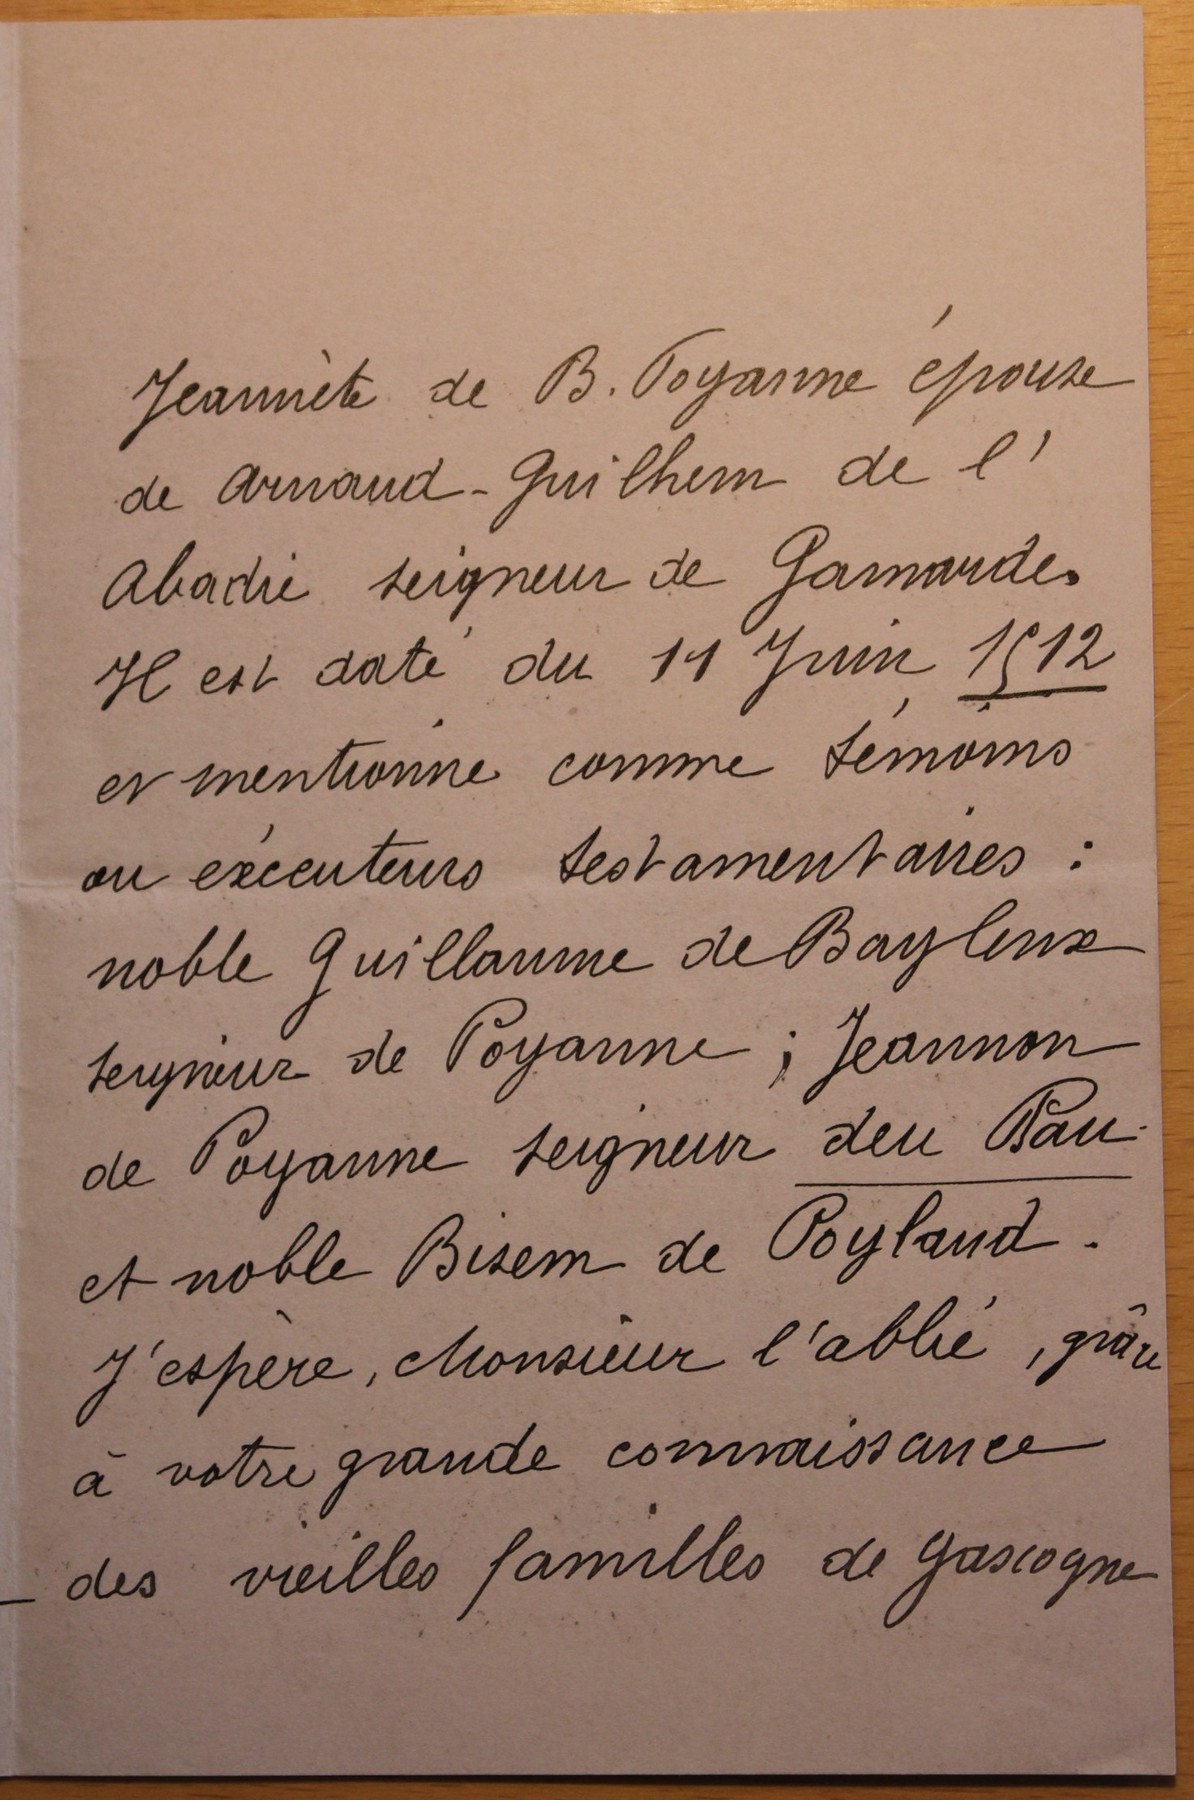 Jeannète de B. Poyanne épouse
de Arnaud-Guilhem de l'
Abadie seigneur de Gamarde.
Il est daté du 11 Juin 1512
et mentionne comme témoins
ou exécuteurs testamentaires :
noble Guillaume de Baylenx
seigneur de Poyanne ; Jeannon
de Poyanne seigneur deu Pau
et noble Bisem de Poylaud.
J'espère, Monsieur l'abbé, grâce
à votre grande connaissance
des vieilles familles de Gascogne